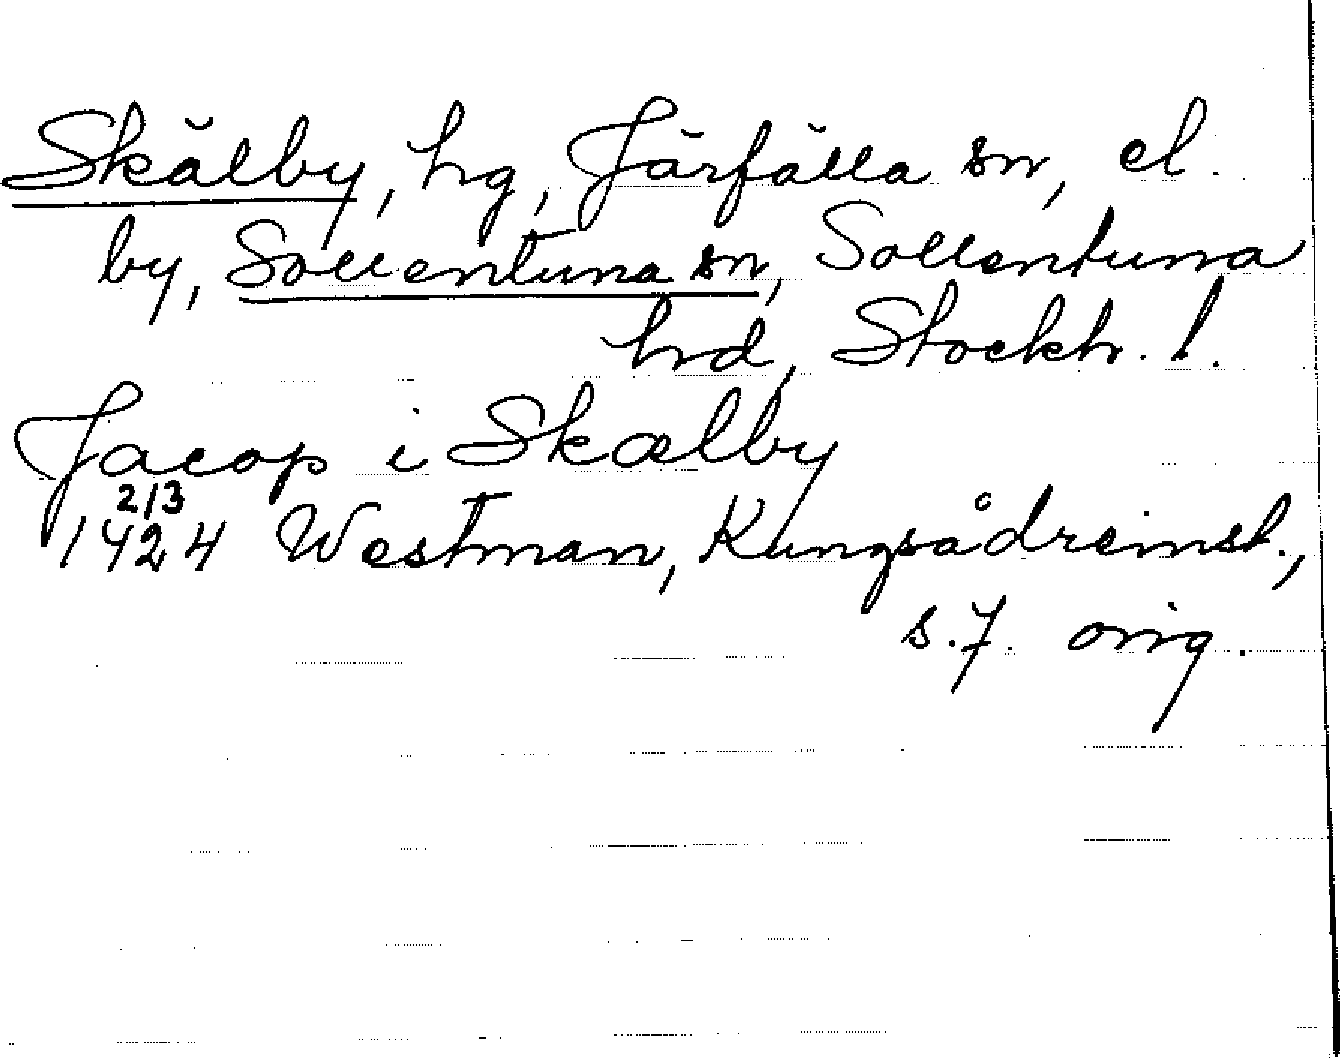 Skälby, hg, Järfälla sn, el.
by, Sollentuna sn, Sollentuna
hrd, Stockh. l.
Jacop i Skælby
2/3
1424 Westman, Kungsådreinst.,
s. 7. orig.